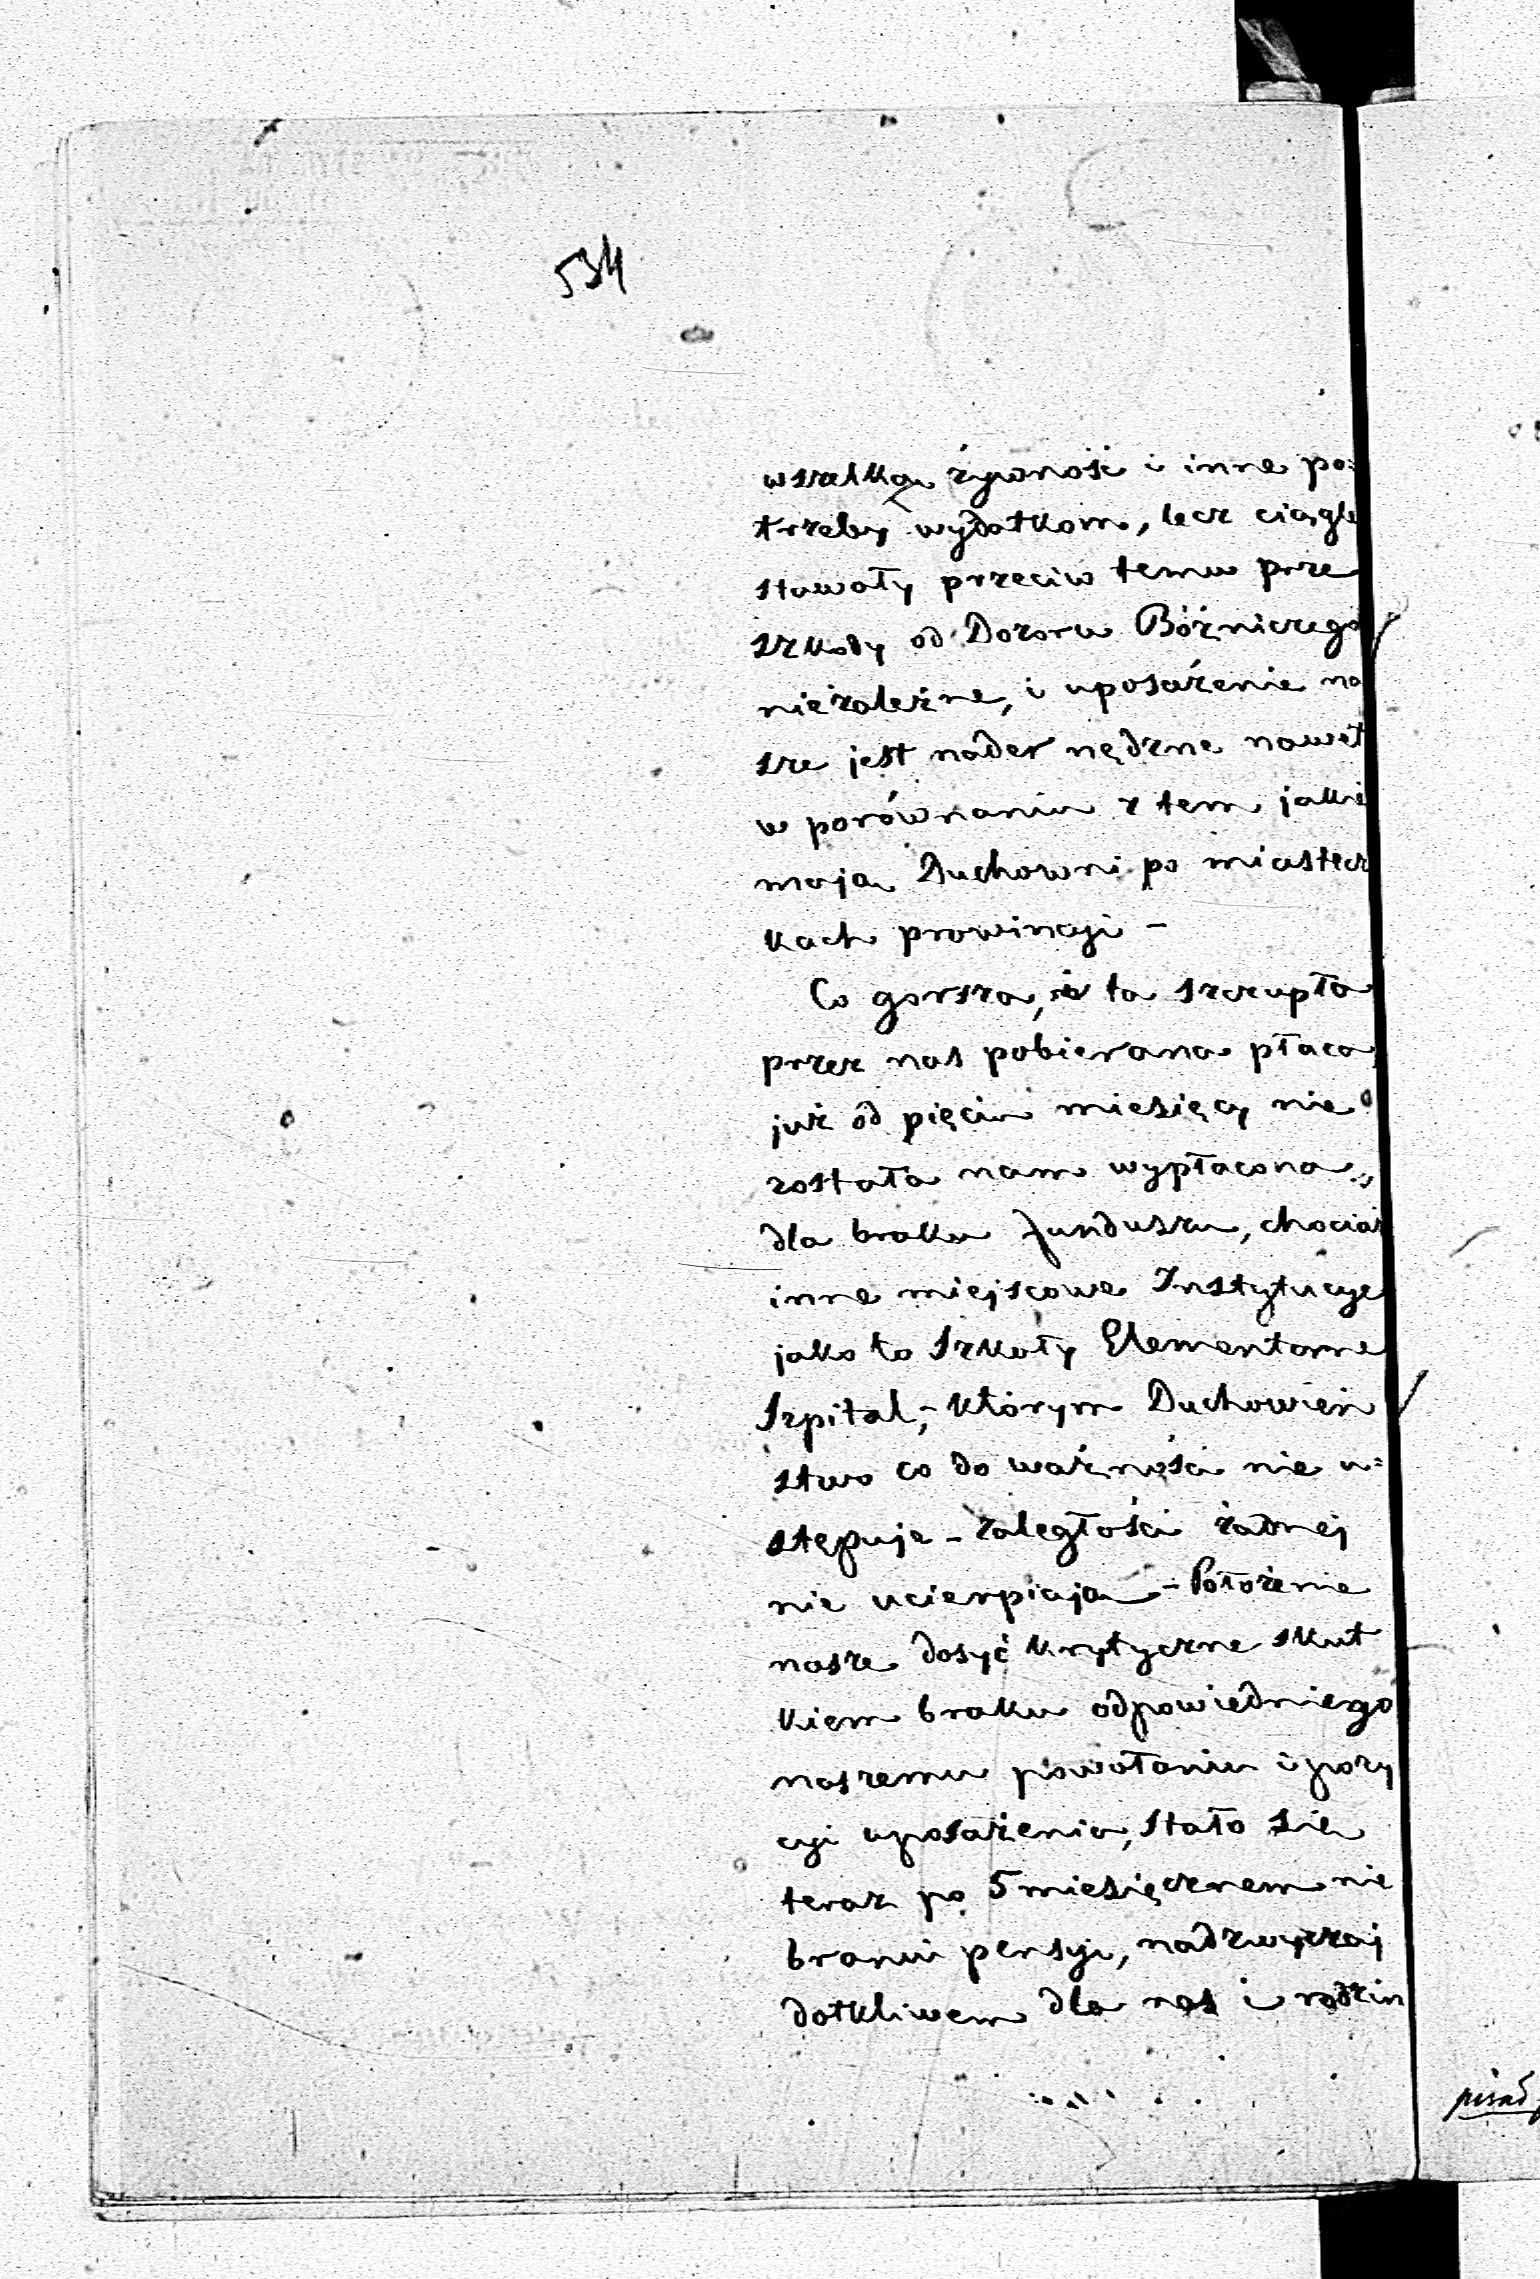 534
wszelką żywność i inne po=
trzeby wydatkom, lecz ciągle
stawały przeciw temu prze
szkody od Dozoru Bóżniczego
niezależne, i uposażenie na
sze jest nader nędzne nawet
w porównaniu z tem jakie
mają Duchowni po miastecz
kach prowincyi –
Co gorsza, iż ta szczupła
przez nas pobierana płaca,
już od pięciu miesięcy nie
została nam wypłacona,
dla braku funduszu, chociaż
inne miejscowe Instytucye
jako to Szkoły Elementarne
Szpital, którym Duchowień
stwo co do ważności nie u=
stępuje – zaległości żadnej
nie ucierpiają – Położenie
nasze dosyć krytyczne skut
kiem braku odpowiedniego
naszemu powołaniu i pozy
cyi uposażenia, stało się
teraz po 5 miesięcznem nie
braniu pensyi, nadzwyczaj
dotkliwem dla nas i rodzin